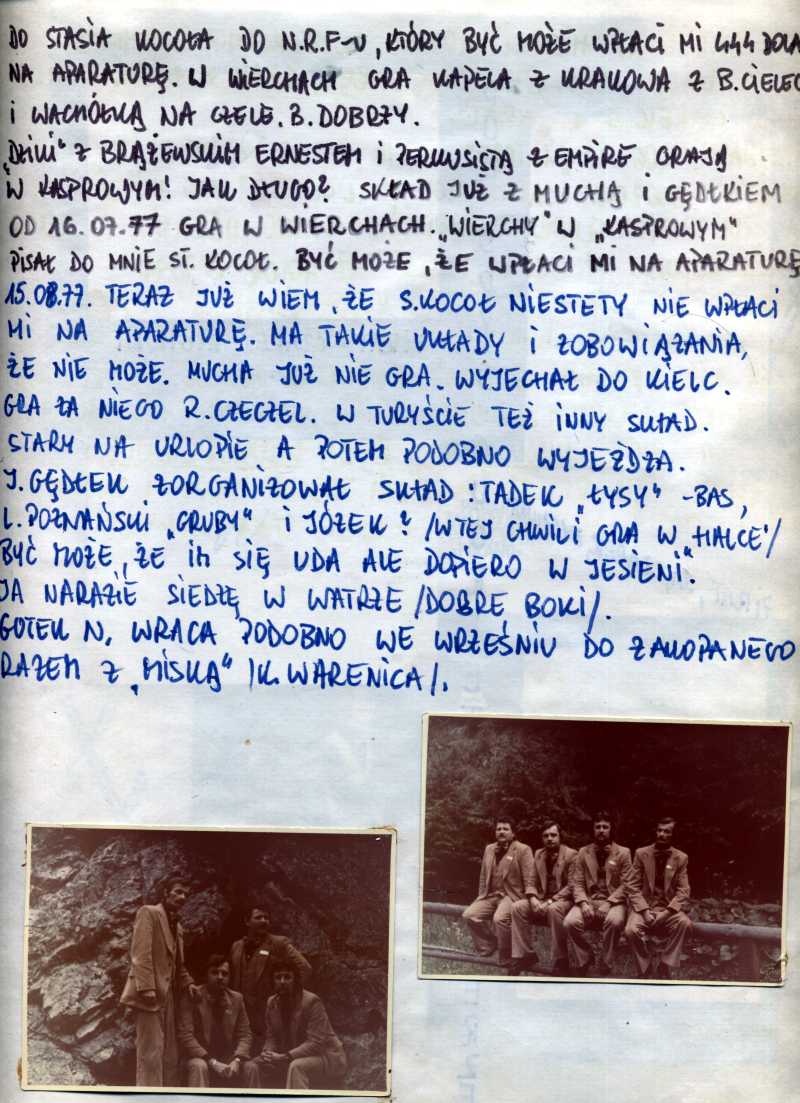 DO STASIA KOCOŁA DO N.R.F-U, KTÓRY BYĆ MOŻE WPŁACI MI 444 DOLA
NA APARATURĘ. W WIERCHACH GRA KAPELA Z KRAKOWA Z B.CIELEC
I WACHÓŁKĄ NA CZELE. B. DOBRZY.
„DZIKI" Z BRĄŻEWSKIM ERNESTEM I PERKUSISTĄ Z EMPIRE GRAJĄ
W KASPROWYM! JAK DŁUGO? SKŁAD JUŻ Z MUCHĄ I GĘDŁKIEM
OD 16.07.77 GRA W WIERCHACH. „WIERCHY" W „KASPROWYM"
PISAŁ DO MNIE ST. KOCOŁ. BYĆ MOŻE, ŻE WPŁACI MI NA APARATURĘ
15.08.77. TERAZ JUŻ WIEM, ŻE S.KOCOŁ NIESTETY NIE WPŁACI
MI NA APARATURĘ. MA TAKIE UKŁADY I ZOBOWIĄZANIA,
ŻE NIE MOŻE. MUCHA JUŻ NIE GRA. WYJECHAŁ DO KIELC.
GRA ZA NIEGO R.CZECZEL. W TURYŚCIE TEŻ INNY SKŁAD.
STARY NA URLOPIE A POTEM PODOBNO WYJEŻDŻA.
J.GĘDŁEK ZORGANIZOWAŁ SKŁAD: TADEK „ŁYSY" -BAS,
L.POZNAŃSKI „GRUBY" I JÓZEK? /W TEJ CHWILI GRA W „HALCE"/
BYĆ MOŻE, ŻE IM SIĘ UDA ALE DOPIERO W JESIENI.
JA NARAZIE SIEDZĘ W WATRZE /DOBRE BOKI/.
GOTEK N, WRACA PODOBNO WE WRZEŚNIU DO ZAKOPANEGO
RAZEM Z „MISKĄ" /K.WARENICA/.